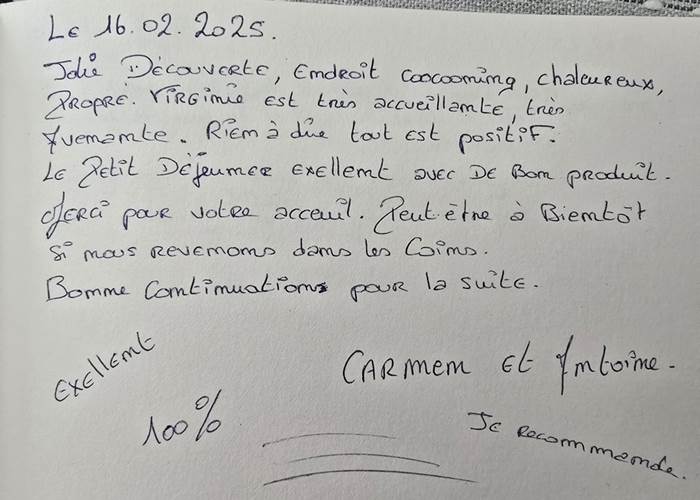 Le 16.02.2025.
Jolie Découverte, Endroit coocooning, chaleureux,
Propre. Virginie est très accueillante, très
avenante. Rien à dire tout est positif.
Le Petit Déjeuner exellent avec De Bon produit.
Merci pour votre acceuil. Peut-être à Bientôt
si nous revenons dans les Coins.
Bonne Continuations pour la suite.
Exellent
100%
Carmen et Antoine.
Je recommande.